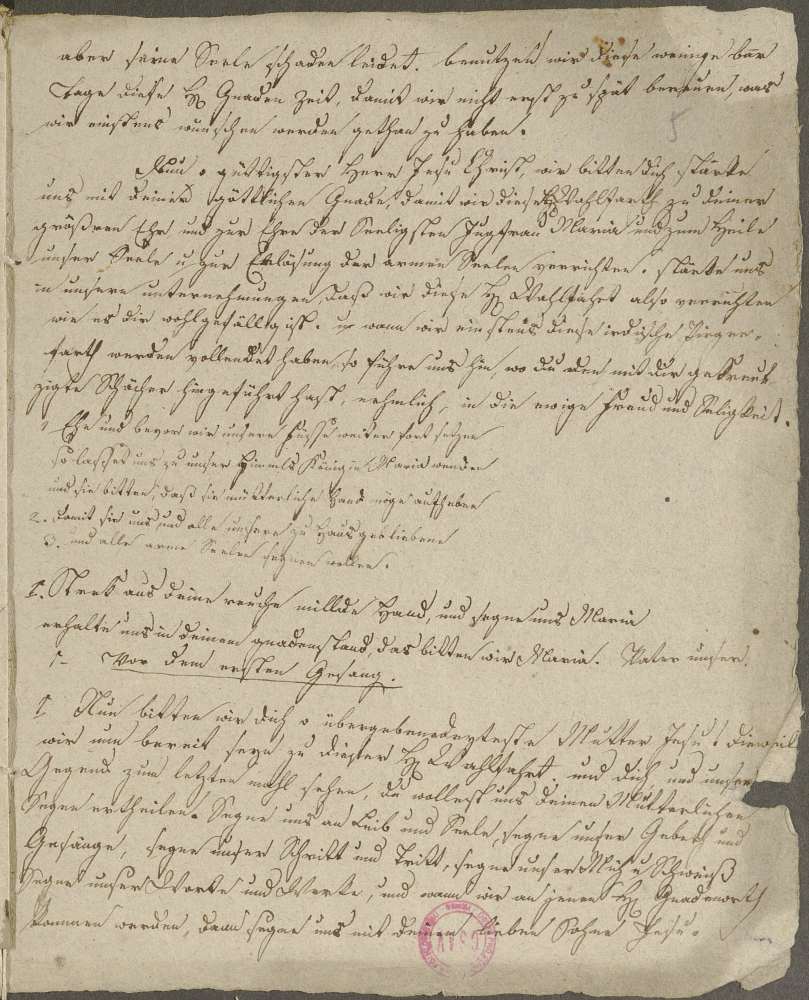 aber seine Seele schaden leidet. benutzen wir diese wenige baar
Tage diese Hl Gnaden Zeit, damit wir nicht erst zu spät bereuen, was
wir einstens wünschen werden gethan zu haben.
5
Nun o güttigster Herr Jesu Christ, wir bitten dich stärke
uns mit deiner göttlichen Gnade, damit wir diese Hl Wahlfarth zu deiner
größren Ehr und zur Ehre der Seeligsten Jugfrau Maria und zum Heile
unser Seele u. zur Erlösung der armen Seelen verrichten. stärke uns
in unsern unternehmungen, daß wir diese Hl Wahlfahrt also verrichten
wie es dir wohlgefällig ist. u wann wir einstens diese irdische
farth werden vollendet haben, so führe uns hin, wo du den mit dir gekreut
zigte Schächer hingeführt hast, nehmlich, in die ewige Freud und Seligkeit.
1 Ehe und bevor wir unsere Füsse weiter fort setzen
so lasset uns zu unser Himmels Königin Maria wenden
und sie bitten, daß sie mütterliche Hand möge aufheben
2. damit sie uns und alle unsere zu Haus gebliebene
3. und alle arme Seelen segnen wollen.
1. Strek aus deine reiche millde Hand, und segne uns Maria
erhalte uns in deinem gnadenstand, das bitten wir Maria. Vater unser.
1- Vor dem ersten Gesang.
1 Nun bitten wir dich o übergebenedeyteste Mutter Jesu! dieweil
wir nun bereit seyn zu dieser Hl Wahlfahrt. und dich und unser
Gegend zum letzten mahl sehen, du wollest uns deinen Mütterlichen
Segen ertheilen. Segne uns an Leib und Seele, segne unser Gebeth und
Gesänge, segne unser Schritt und Tritt, segne unser Müh u Schweiß
Segne unser Worte und Werke, und wann wir an jenen Hl Gnadenorth
kommen werden, dann segne uns mit deinem lieben Sohne Jesu.